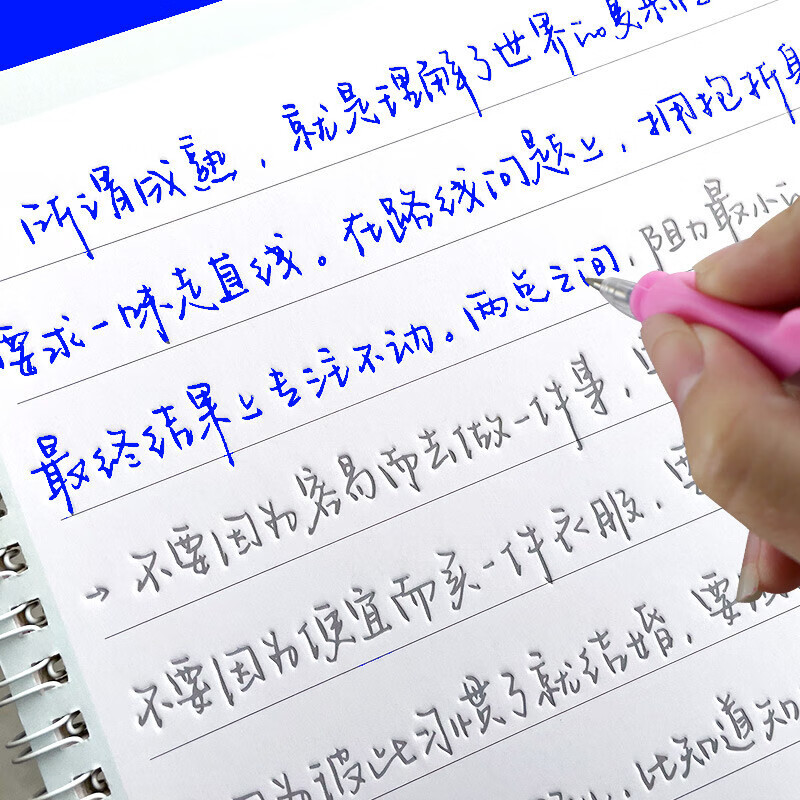 所谓成熟，就是理解了世界的复杂
要求一味走直线。在路线问题上，拥抱折
最终结果上专注不动。两点之间，阻力最小
→ 不要因为容易而去做一件事，
不要因为便宜而买一件衣服，要
因为彼此习惯了就结婚，要
比知道